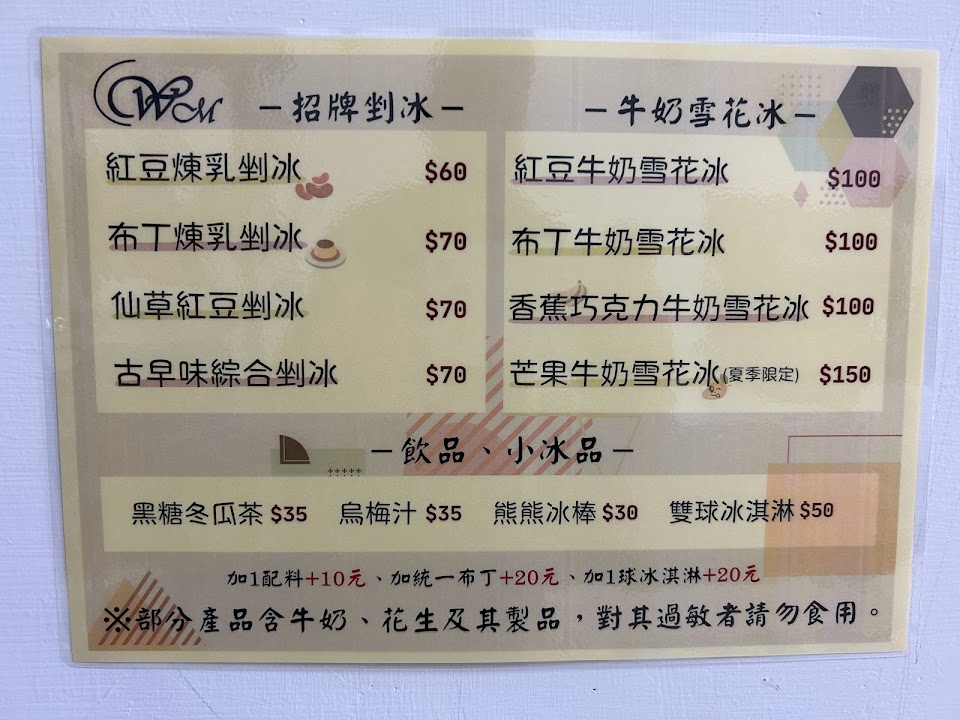 WM
－招牌剉冰－
紅豆煉乳剉冰 $60
布丁煉乳剉冰 $70
仙草紅豆剉冰 $70
古早味綜合剉冰 $70
－牛奶雪花冰－
紅豆牛奶雪花冰 $100
布丁牛奶雪花冰 $100
香蕉巧克力牛奶雪花冰 $100
芒果牛奶雪花冰(夏季限定) $150
－飲品、小冰品－
黑糖冬瓜茶 $35 烏梅汁 $35 熊熊冰棒 $30 雙球冰淇淋 $50
加1配料+10元、加統一布丁+20元、加1球冰淇淋+20元
※部分產品含牛奶、花生及其製品，對其過敏者請勿食用。